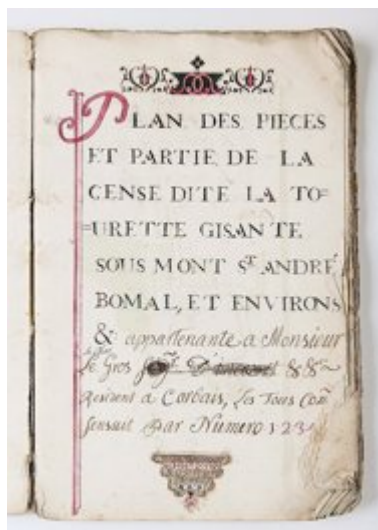 PLAN DES PIECES
ET PARTIE DE LA
CENSE DITE LA TO=
=URETTE GISANTE
SOUS MONT ST ANDRÉ
BOMAL, ET ENVIRONS
& appartenante a Monsieur
Le Gros &&
Resident a Corbais, Les Tous Com
sensuit Par Numero 123